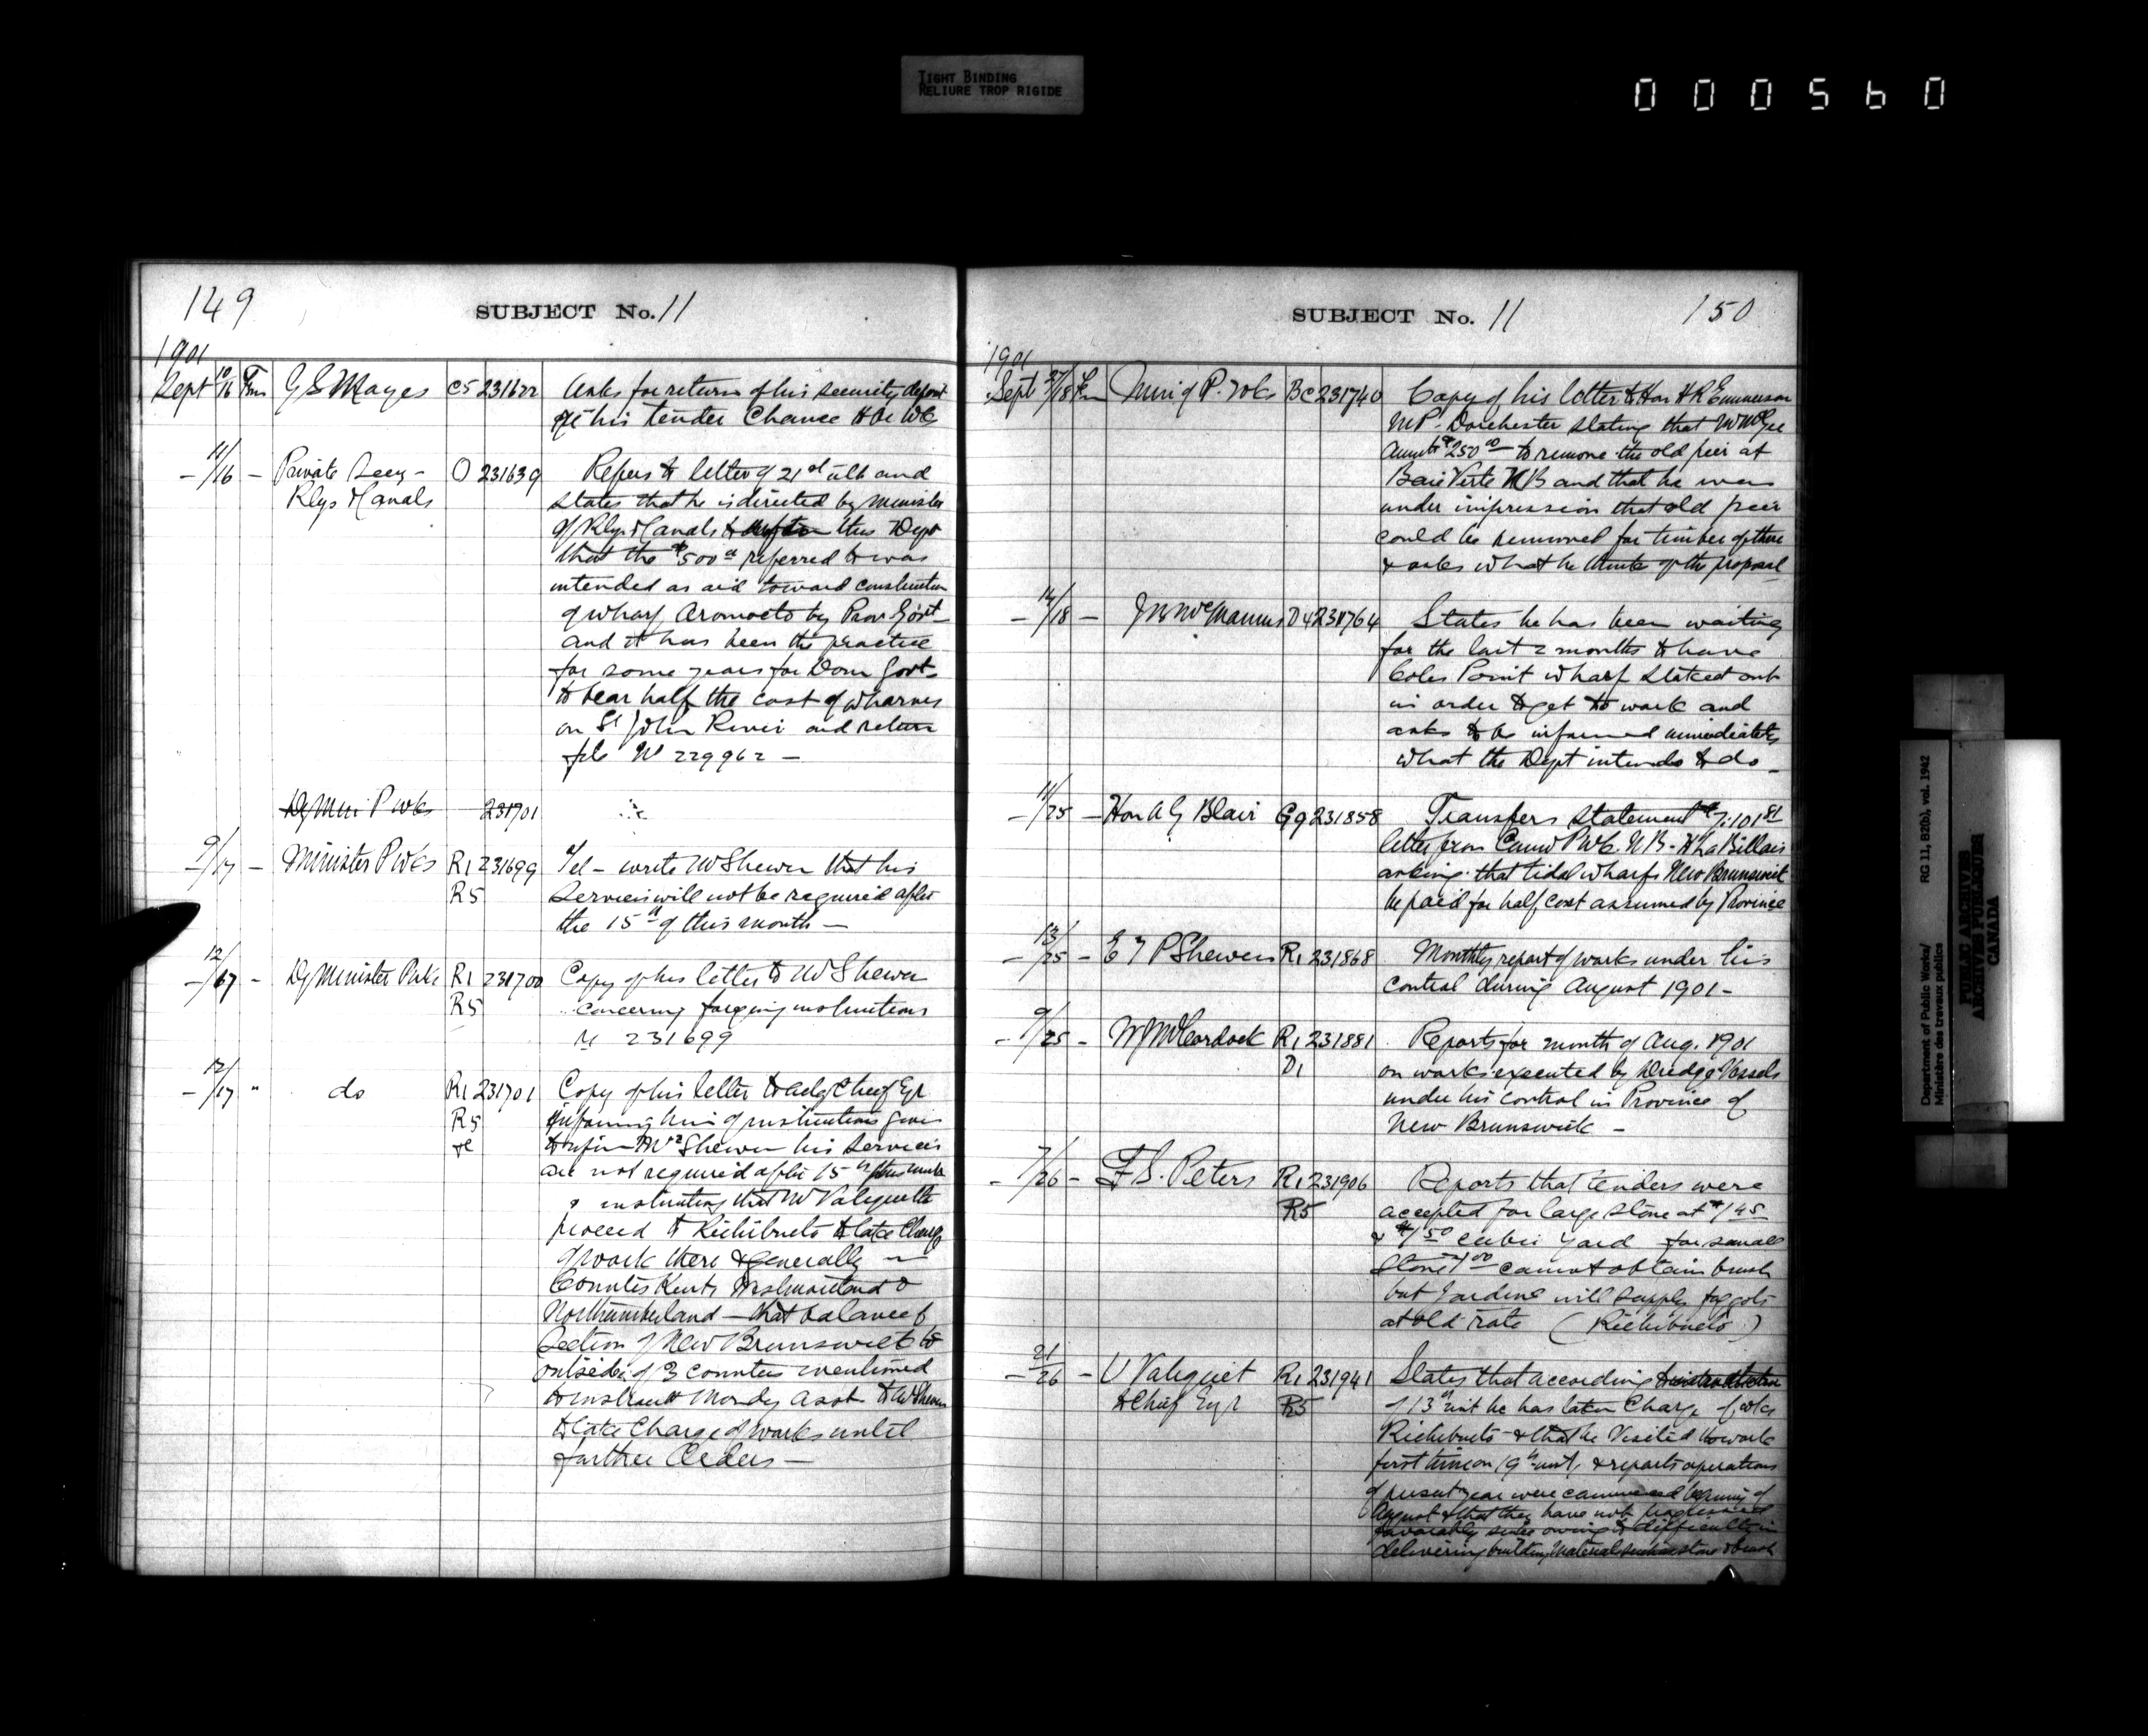 TIGHT BINDING
RELIURE TROP RIGIDE
000560
149
SUBJECT No. 11
1901
Sept 10/16 Fm G S Mayes C5 231622 Asks for return of his security deposit
his tender Chance Hr Wf
11/16 - Private Secy - O 231639 Refers to letter of 21st ult and
Rlys & Canals states that he is directed by Minister
of Rlys & Canals to this Dept
that the $500 referred to was
intended as aid toward construction
of wharf Oromocto by Prov Govt
and it has been the practice
for some years for Dom Govt
to bear half the cost of wharves
on St John River and return
file No 229962 -
Dy Min P Wks 231701
9/17 - Minister P Wks R1 231699 Tel - wrote Mr Shewen that his
R5 services will not be required after
the 15th of this month -
12/17 - Dy Minister P Wks R1 231700 Copy of his letter to Mr Shewen
R5 concerning foregoing instructions
231699
12/17 " do R1 231701 Copy of his letter to actg Chief Egr
R5 informing him of instructions given
re to inform Mr Shewen his services
are not required after 15th this month
& instructing that Mr Valiquette
proceed to Richibucto & take charge
of work there & generally in
Counties Kent, Westmorland &
Northumberland - that balance of
section of New Brunswick
outside of 3 counties mentioned
to instruct Mondy Asst to Mr Shewen
to take charge of works until
further Orders -
SUBJECT No. 11
150
1901
Sept 27/18 Fm Min of P. Wks BC 231740 Copy of his letter to Hon H R Emmerson
MP. Dorchester stating that
$250.00 to remove the old pier at
Baie Verte NB and that he was
under impression that old pier
could be removed for timber of there
& asks what he thinks of the proposal
14/18 - McManus D4 231764 States he has been waiting
for the last 2 months to have
Coles Point wharf staked out
in order to get to work and
asks to be informed immediately
what the Dept intends to do -
11/25 - Hon A G Blair G9 231858 Transfers statement
letter from P Wk. N B - H La Billois
asking that tidal wharfs New Brunswick
be paid for half cost assumed by Province
13/25 - E T P Shewen R1 231868 Monthly report of works under his
control during August 1901 -
9/25 - W J McCordock R1 231881 Reports for month of Aug. 1901
D1 on works executed by Dredge Vessels
under his control in Province of
New Brunswick -
7/26 - F S. Peters R1 231906 Reports that tenders were
R5 accepted for large stone at $1.45
& $1.50 cubic yard for small
stone 1.00 cannot obtain brush
but Jardine will supply faggots
at old rate (Richibucto)
21/26 - U Valiquet R1 231941 States that according to instructions
A Chief Egr R5 of 13th inst he has taken charge of wks
Richibucto & that he visited the work
first time on 19th inst, & reports operations
of present year were commenced beginning of
August & that they have not progressed
favorably since owing to difficulty in
delivering building material such as stone & brush
Department of Public Works/
Ministère des travaux publics
RG 11, B2(b), vol. 1942
PUBLIC ARCHIVES
ARCHIVES PUBLIQUES
CANADA